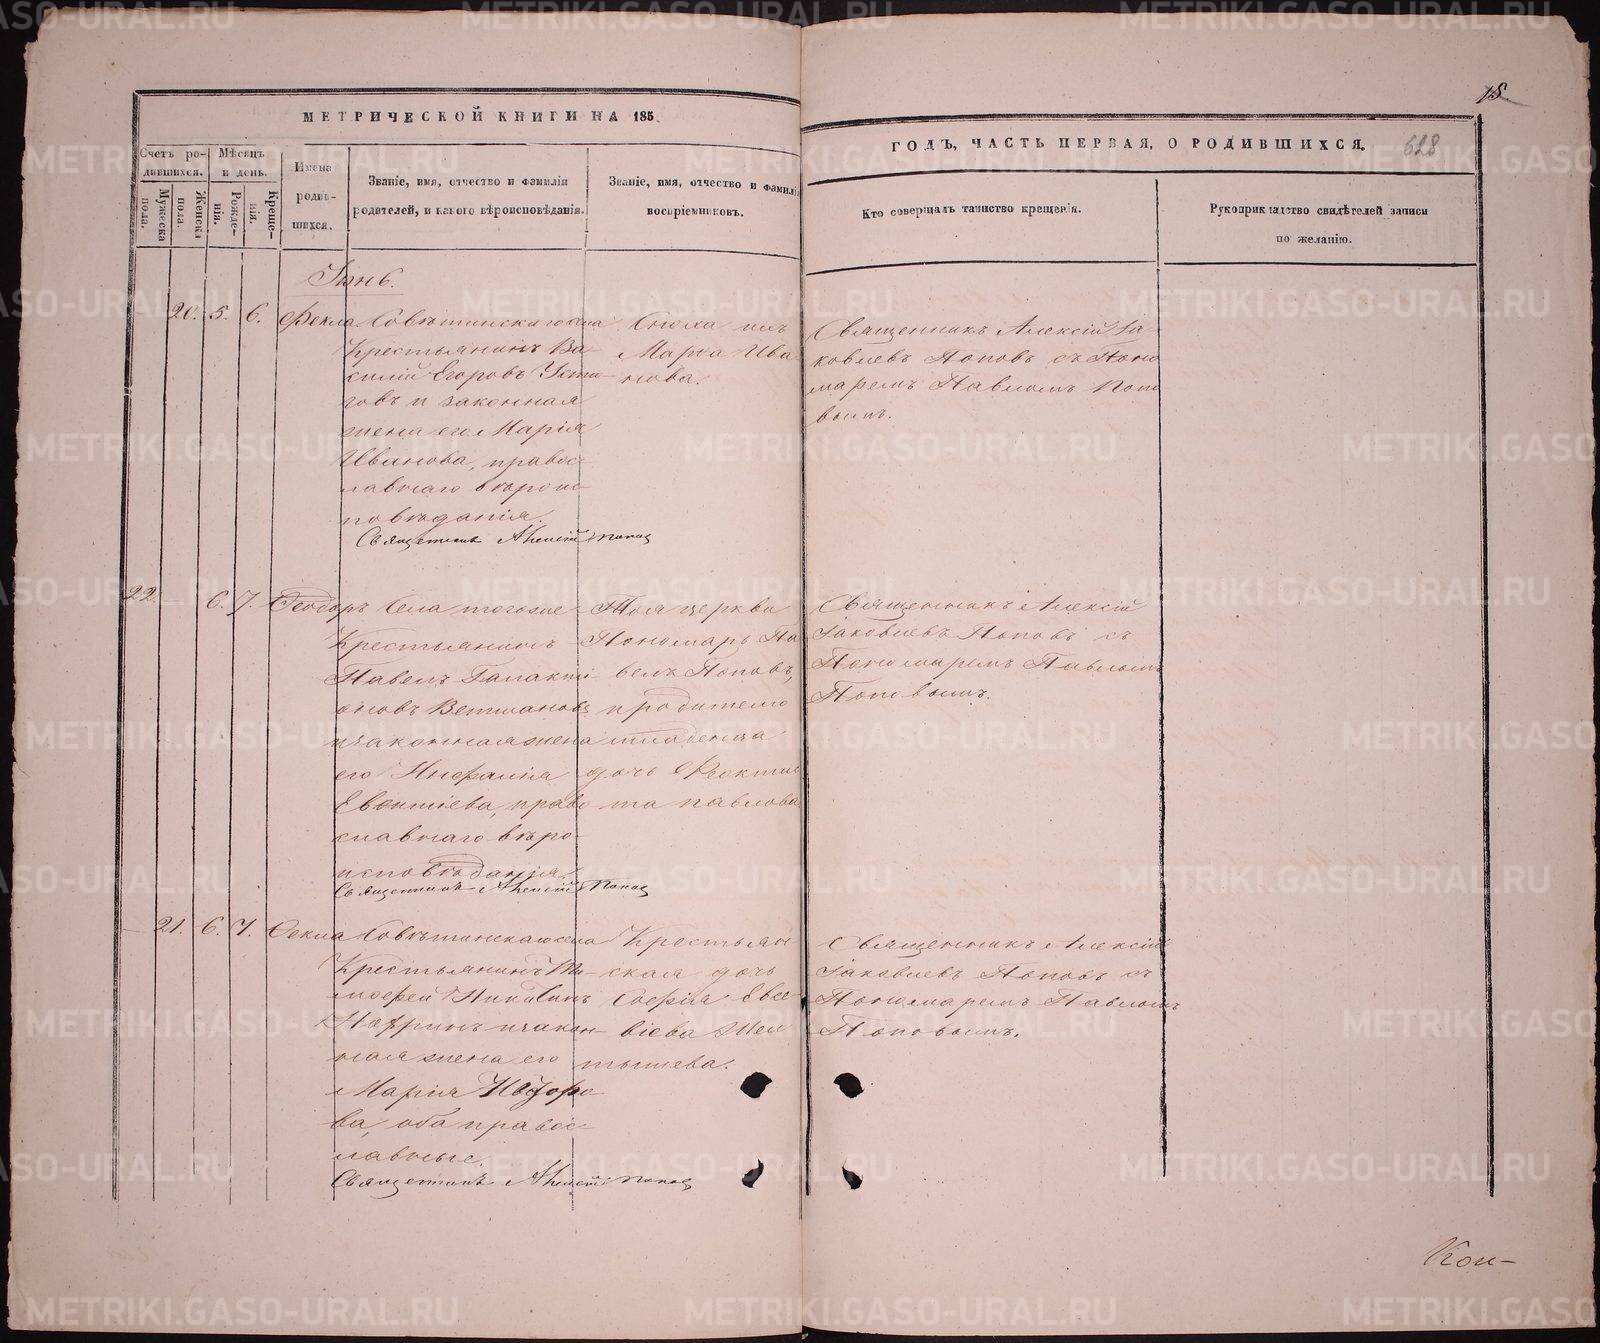 15.
628
МЕТРИЧЕСКОЙ КНИГИ НА 185
ГОДЪ, ЧАСТЬ ПЕРВАЯ, О РОДИВШИХСЯ.
Счетъ ро-
дившихся.
Мужеска
пола.
Женска
пола.
Мѣсяцъ
и день.
Рожде-
нія.
Креще-
нія.
Имена
родив-
шихся.
Званіе, имя, отчество и фамилія
родителей, и какого вѣроисповѣданія.
Званіе, имя, отчество и фамилія
воспріемниковъ.
Кто совершалъ таинство крещенія.
Рукоприкладство свидѣтелей записи
по желанію.
Іюнь.
20. 5. 6. Фекла
Крестьянинъ Ва-
силій Егоровъ Усти-
говъ и законная
жена его Марія
Иванова, правос-
лавнаго вѣроис-
повѣданія.
Священникъ Алексій Попов
Сноха ихъ
Марѳа Ива
нова.
Священникъ Алексій Іа-
ковлевъ Поповъ съ Поно
маремъ Павломъ Попо
вымъ.
22 — 6. 7. Ѳеодоръ
Села тогоже
Крестьянинъ
Павелъ Галакті-
оновъ Ветшановъ
и законная жена
его
православнаго вѣро-
исповѣданія.
Священникъ Алексій Попов
Тоя церкви
Пономарь Па
велъ Поповъ,
и родителю
младенца
дочь Ѳеоктис
та Павлова
Священникъ Алексій
Іаковлевъ Поповъ съ
Пономаремъ Павломъ
Поповымъ.
— 21. 6. 7. Ѳекла
Крестьянинъ Ти-
моѳей
и закон
ная жена его
Марія
ва, оба правос-
лавные.
Священникъ Алексій Попов
Крестьян
ская дочь
Софія Евсе-
віева
тышева.
Священникъ Алексій
Іаковлевъ Поповъ съ
Пономаремъ Павломъ
Поповымъ.
Кон-
METRIKI.GASO-URAL.RU